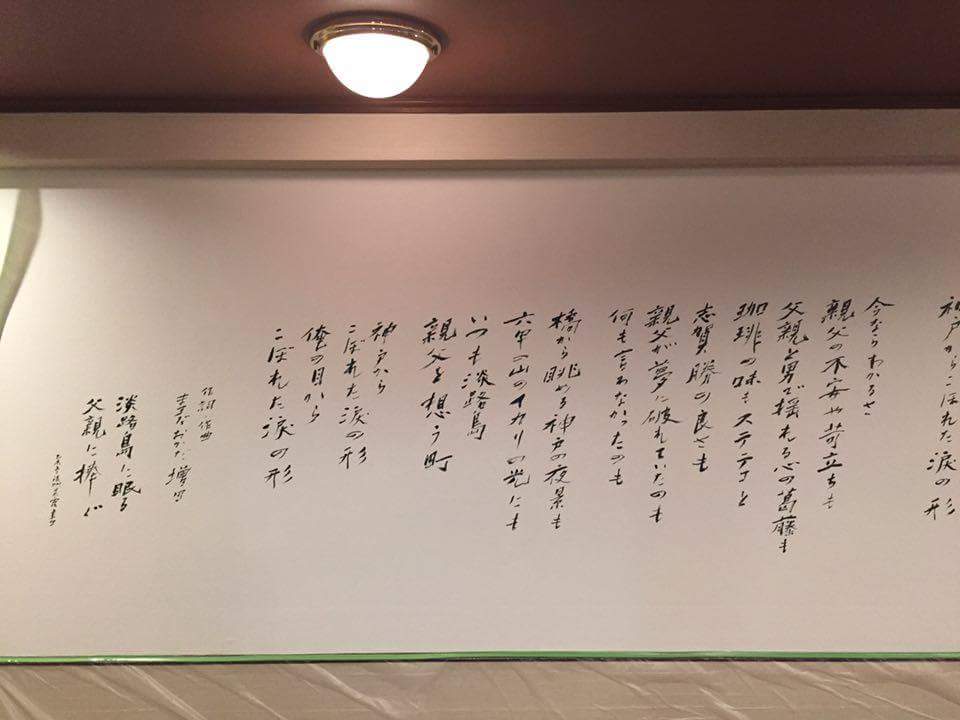 神戸からこぼれた涙の形
今ならわかるさ
親父の不安や苛立ちも
父親と男で揺れる心の葛藤も
珈琲の味もステテコと
志賀勝の良さも
親父が夢に破れていたのも
何も言わなかったのも
橋から眺める神戸の夜景も
六甲の山のイカリの光にも
いつも淡路島
親父を想う町
神戸から
こぼれた涙の形
俺の目から
こぼれた涙の形
作詞 作曲
淡路島に眠る
父親に捧ぐ